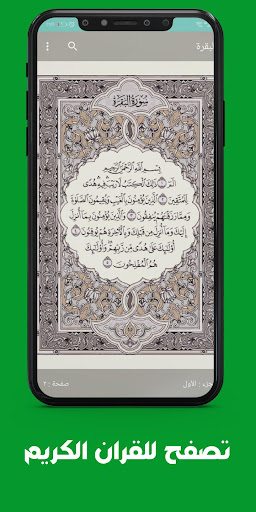 البقرة
سورة البقرة
بسم الله الرحمن الرحيم
الم ذلك الكتب لا ريب فيه هدى
للمتقين الذين يؤمنون بالغيب ويقيمون الصلوة
ومما رزقنهم ينفقون والذين يؤمنون بما أنزل
إليك وما أنزل من قبلك وبالآخرة هم يوقنون
أولئك على هدى من ربهم وأولئك
هم المفلحون
جزء : الأول
صفحة : ٢
تصفح للقران الكريم